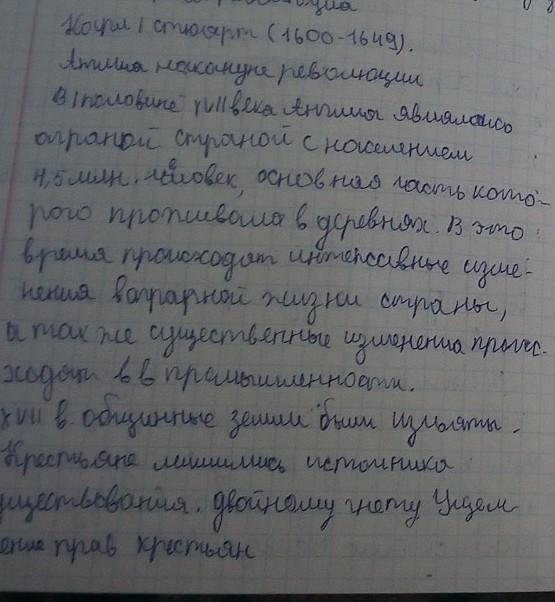 Карл I Стюарт (1600-1649).
Англия накануне революции
В I половине XVII века Англия являлась
аграной страной с населением
4,5 млн. человек, основная часть кото-
рого проживала в деревнях. В это
время происходят интенсивные изме-
нения в аграрной жизни страны,
а так же существенные изменения проис-
ходят в в промышленности.
XVII в. общинные земли были изъяты.
Крестьяне лишились источника
уществования. двойному гнету Ущем
ение прав крестьян